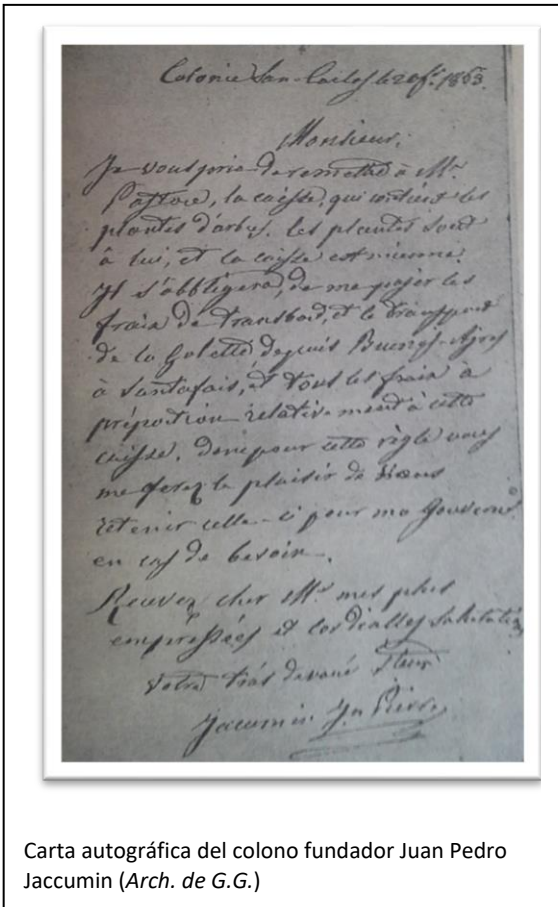 Colonie San-Carlos le 20 f. 1863.
Monsieur,
Je vous prie de remettre à Mr.
Pastore, la caisse, qui contient les
plantes d'arbres. les plantes sont
à lui, et la caisse est mienne.
Il s'obbligera, de me payer les
frais de transbord, et le transport
de la Golette, depuis Buenos-Ayres
à Santafais, et tout les frais à
préportion relativement à cette
caisse. pour cette règle vous
me ferez le plaisir de
retenir celle-ci pour ma Gouverne
en cas de besoin.
Recevez cher Mr. mes plus
empressées et cordialles salutations
Votre très devoué
Jacumin Jn Pierre
Carta autográfica del colono fundador Juan Pedro
Jaccumin (Arch. de G.G.)